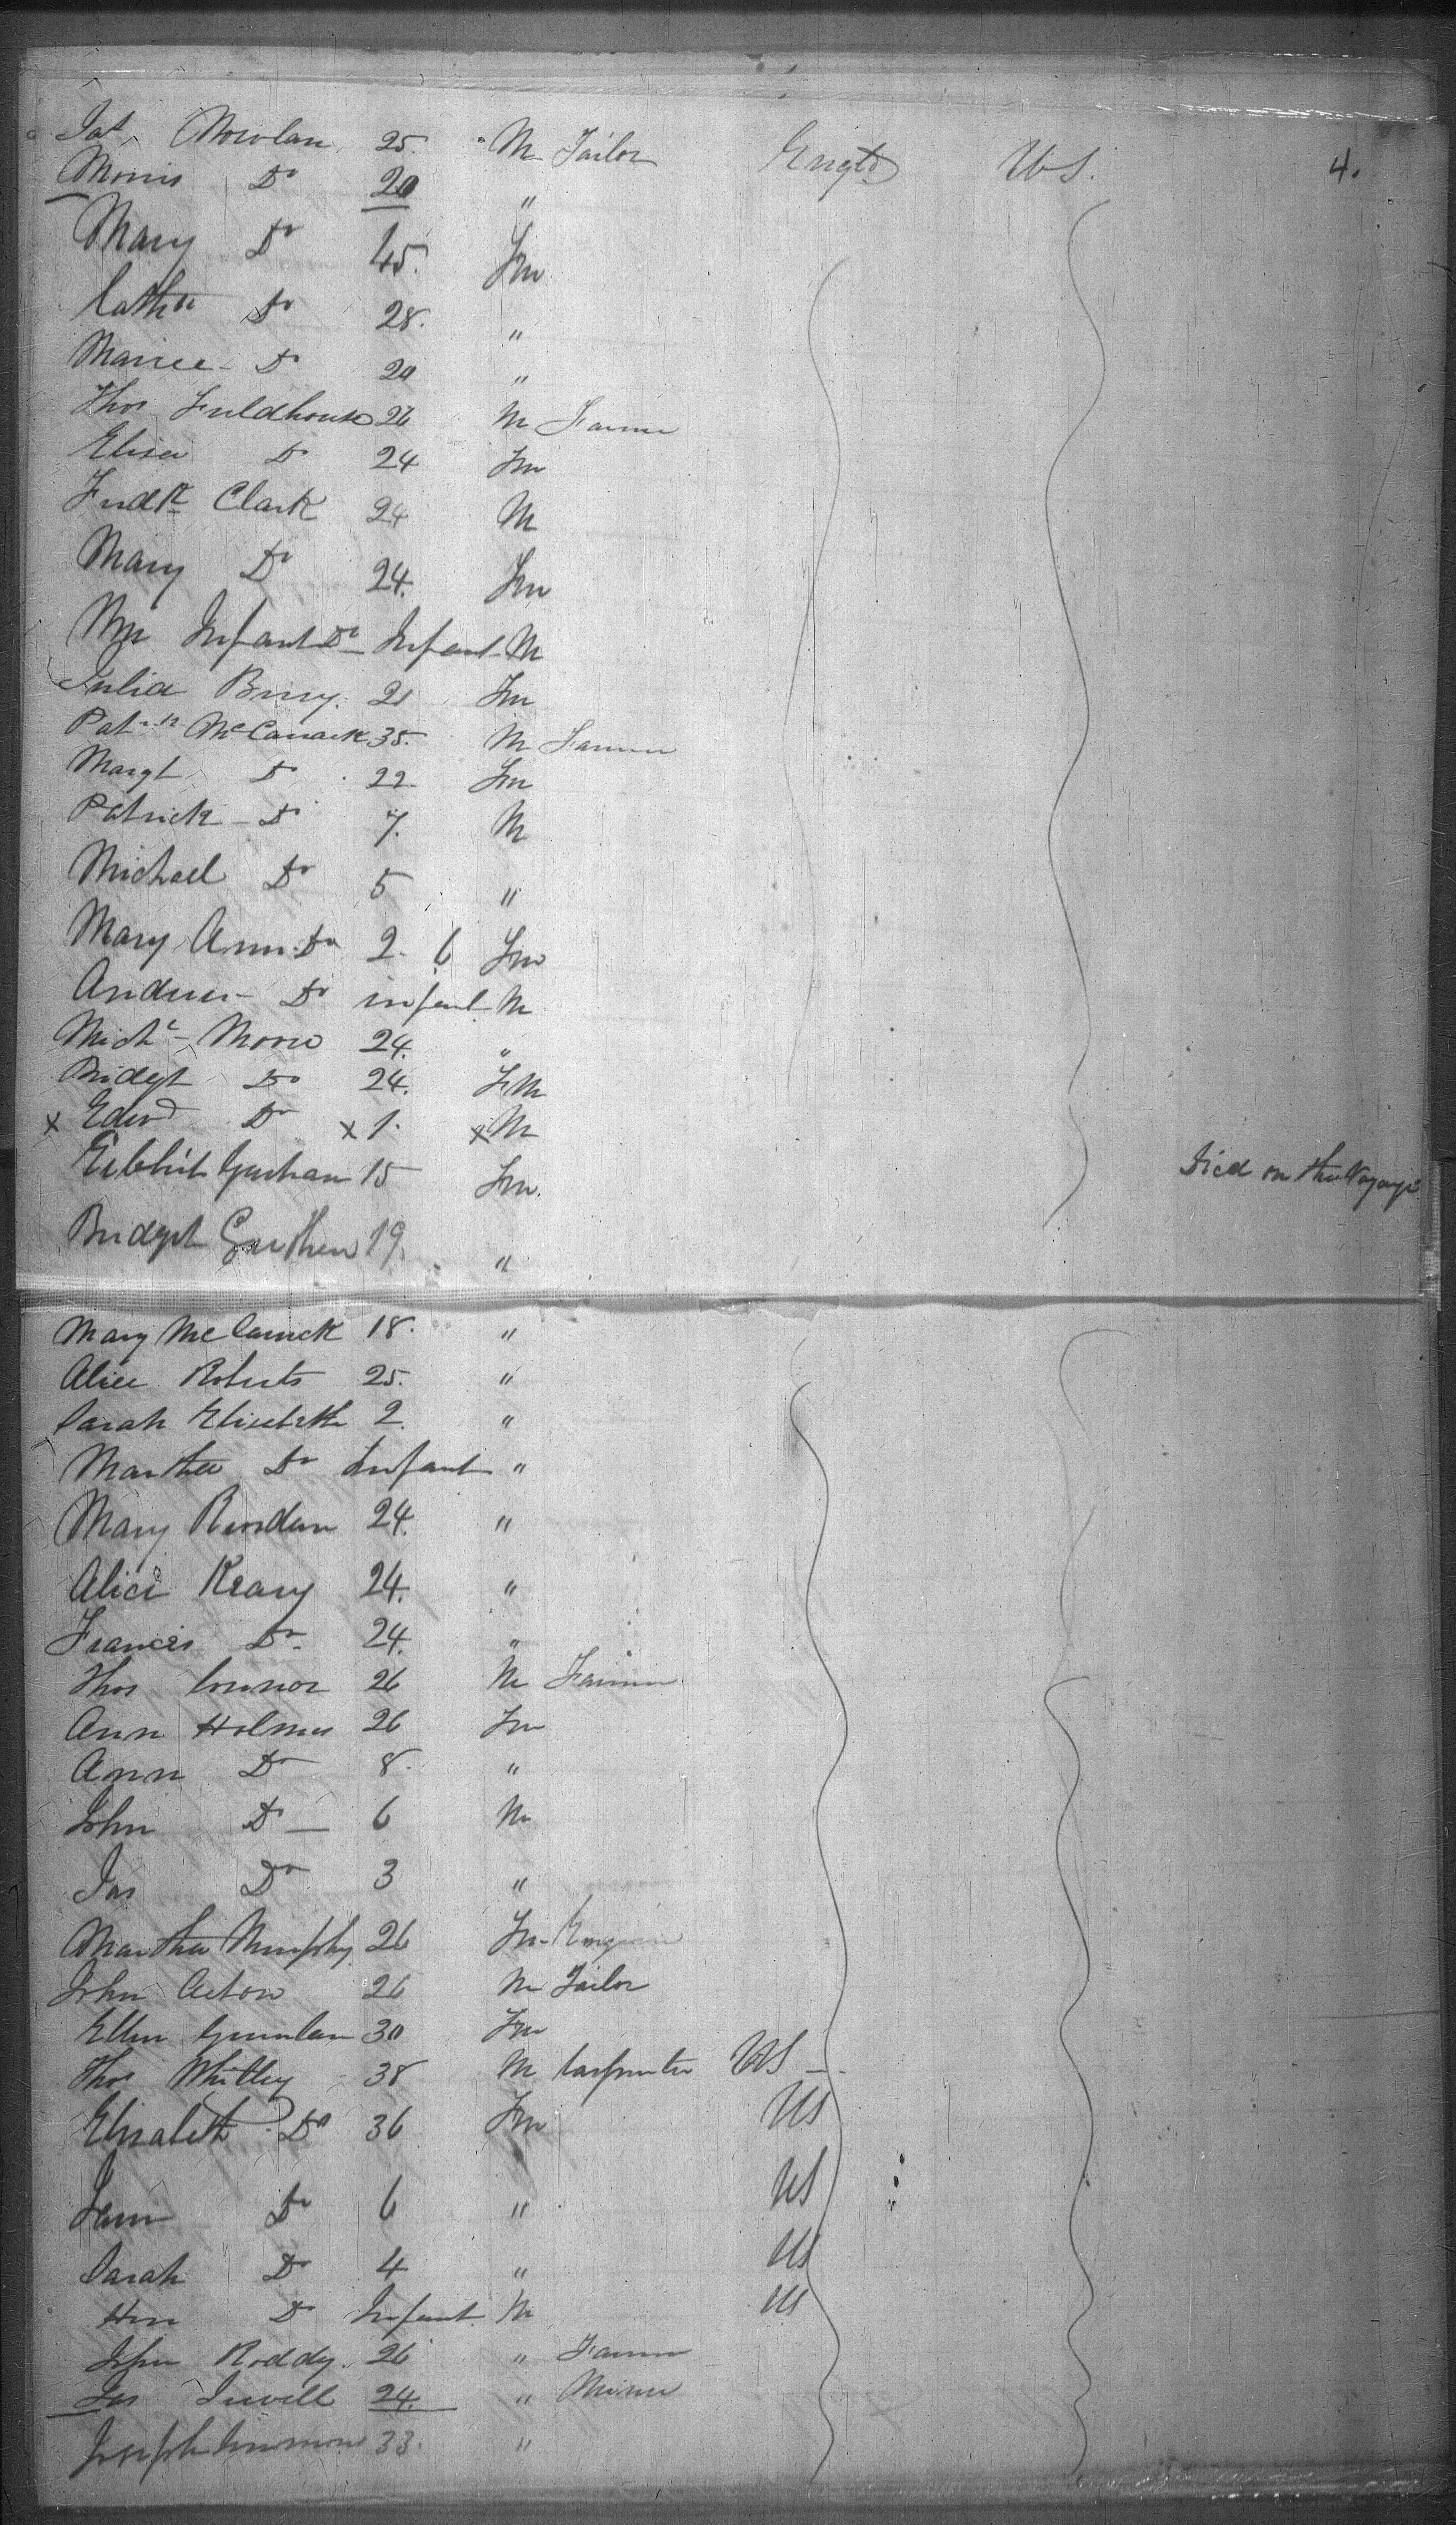 Pat Nowlan 25. M Tailor Engld US. 4.
Morris Do 20 "
Mary Do 45. Fm
Cathe Do 28. "
Do 20 "
Thos Fieldhouse 26 M Farmer
Eliza Do 24 Fm
Fredk Clark 24 M
Mary Do 24. Fm
Wm Infant Do Infant M
Julia 21 Fm
Patrk 35. M Farmer
Margt Do 22 Fm
Patrick Do 7. M
Michael Do 5 "
Mary Ann Do 2. 6 Fm
Andrew Do infant M
Michl Moore 24. "
Bridgt Do 24. FM
x Edwd Do x 1. x M
15 Fm. Died on the Voyage
Bridget 19. "
Mary 18. "
Alice Roberts 25. "
Sarah Elizabeth 2. "
Martha Do Infant "
Mary 24. "
Alice Keary 24. "
Frances Do 24. "
Thos Connor 26 M Farmer
Ann Holmes 26 Fm
Ann Do 8. "
John Do 6 M
Jas Do 3 "
Martha Murphy 26 Fm
John Acton 26 M Tailor
Ellen 30 Fm
Thos Whitley 38 M Carpenter US
Elizabeth Do 36 Fm US
Do 6 " US
Sarah Do 4 " US
Do Infant M US
John Roddy 26 " Farmer
Jas 24. " Miner
Joseph 33. "